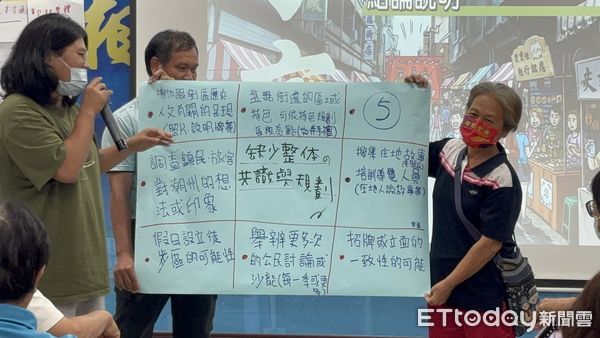 結論說明
街區歷史
人文有關的呈現
(照片、說明牌等)
盤點街道的區域或
特色,可依特色規劃
⑤
調查鎮民、旅客
對潮州的想
法或印象
缺少整体の
共識與規劃
搜集在地故事
培訓導覽人員
(在地人說故事等)
假日設立徒
步區的可能性
舉辦更多次
的公民討論或
沙龍(每一季或更多)
招牌或立面的
一致性的可能
ETtoday新聞雲